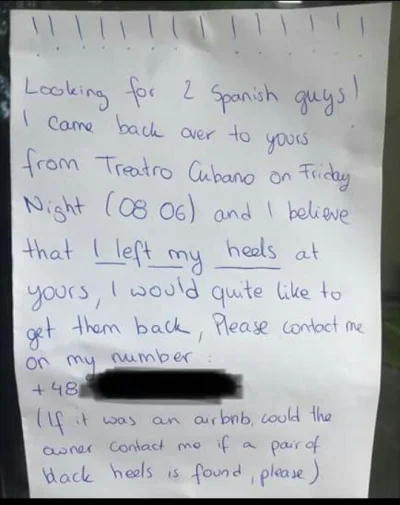 ! ! ! ! ! ! ! ! ! ! ! ! !
Looking for 2 Spanish guys!
I came back over to yours
from Treatro Cubano on Friday
Night (08 06) and I believe
that I left my heels at
yours, I would quite like to
get them back, Please contact me
on my number :
+48
(If it was an airbnb, could the
owner contact me if a pair of
black heels is found, please)